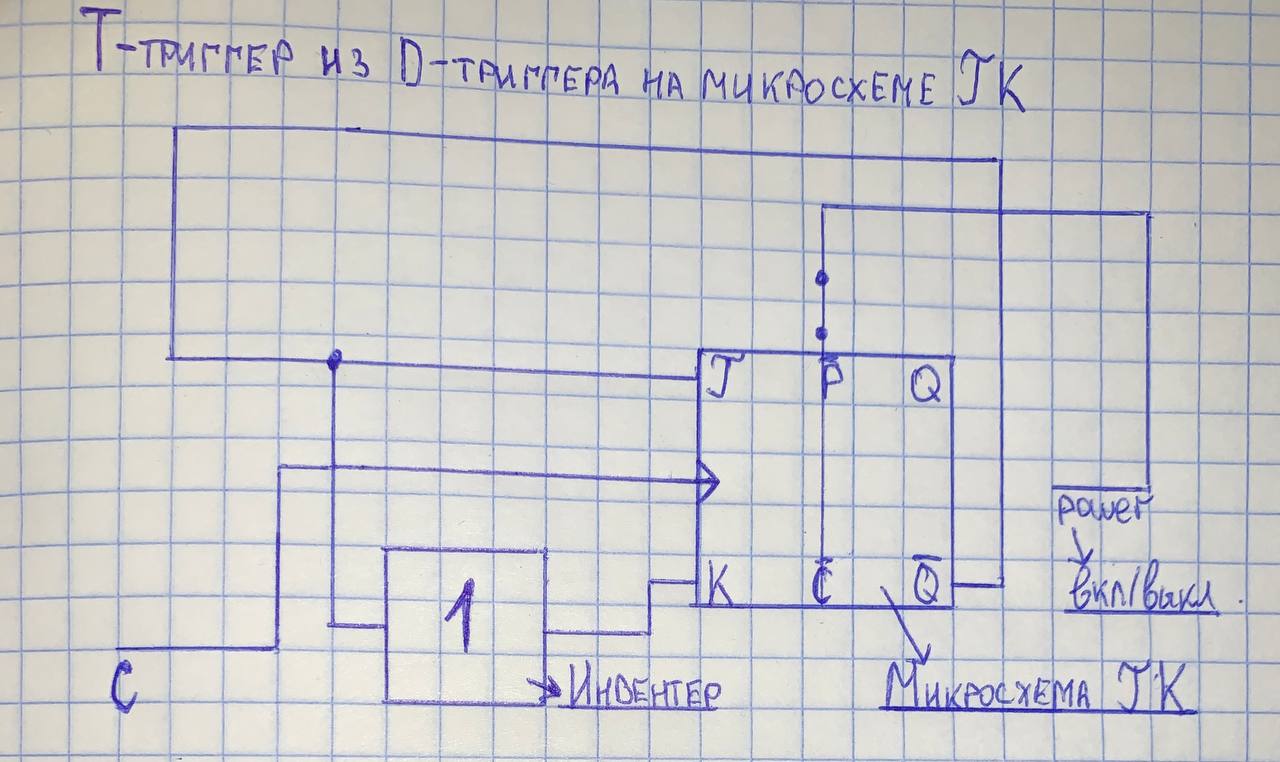 Т-триггер из D-триггера на микросхеме JK
J P̅ Q
power
вкл/выкл.
K C̅ Q̅
1
C
Инвентер
Микросхема JK